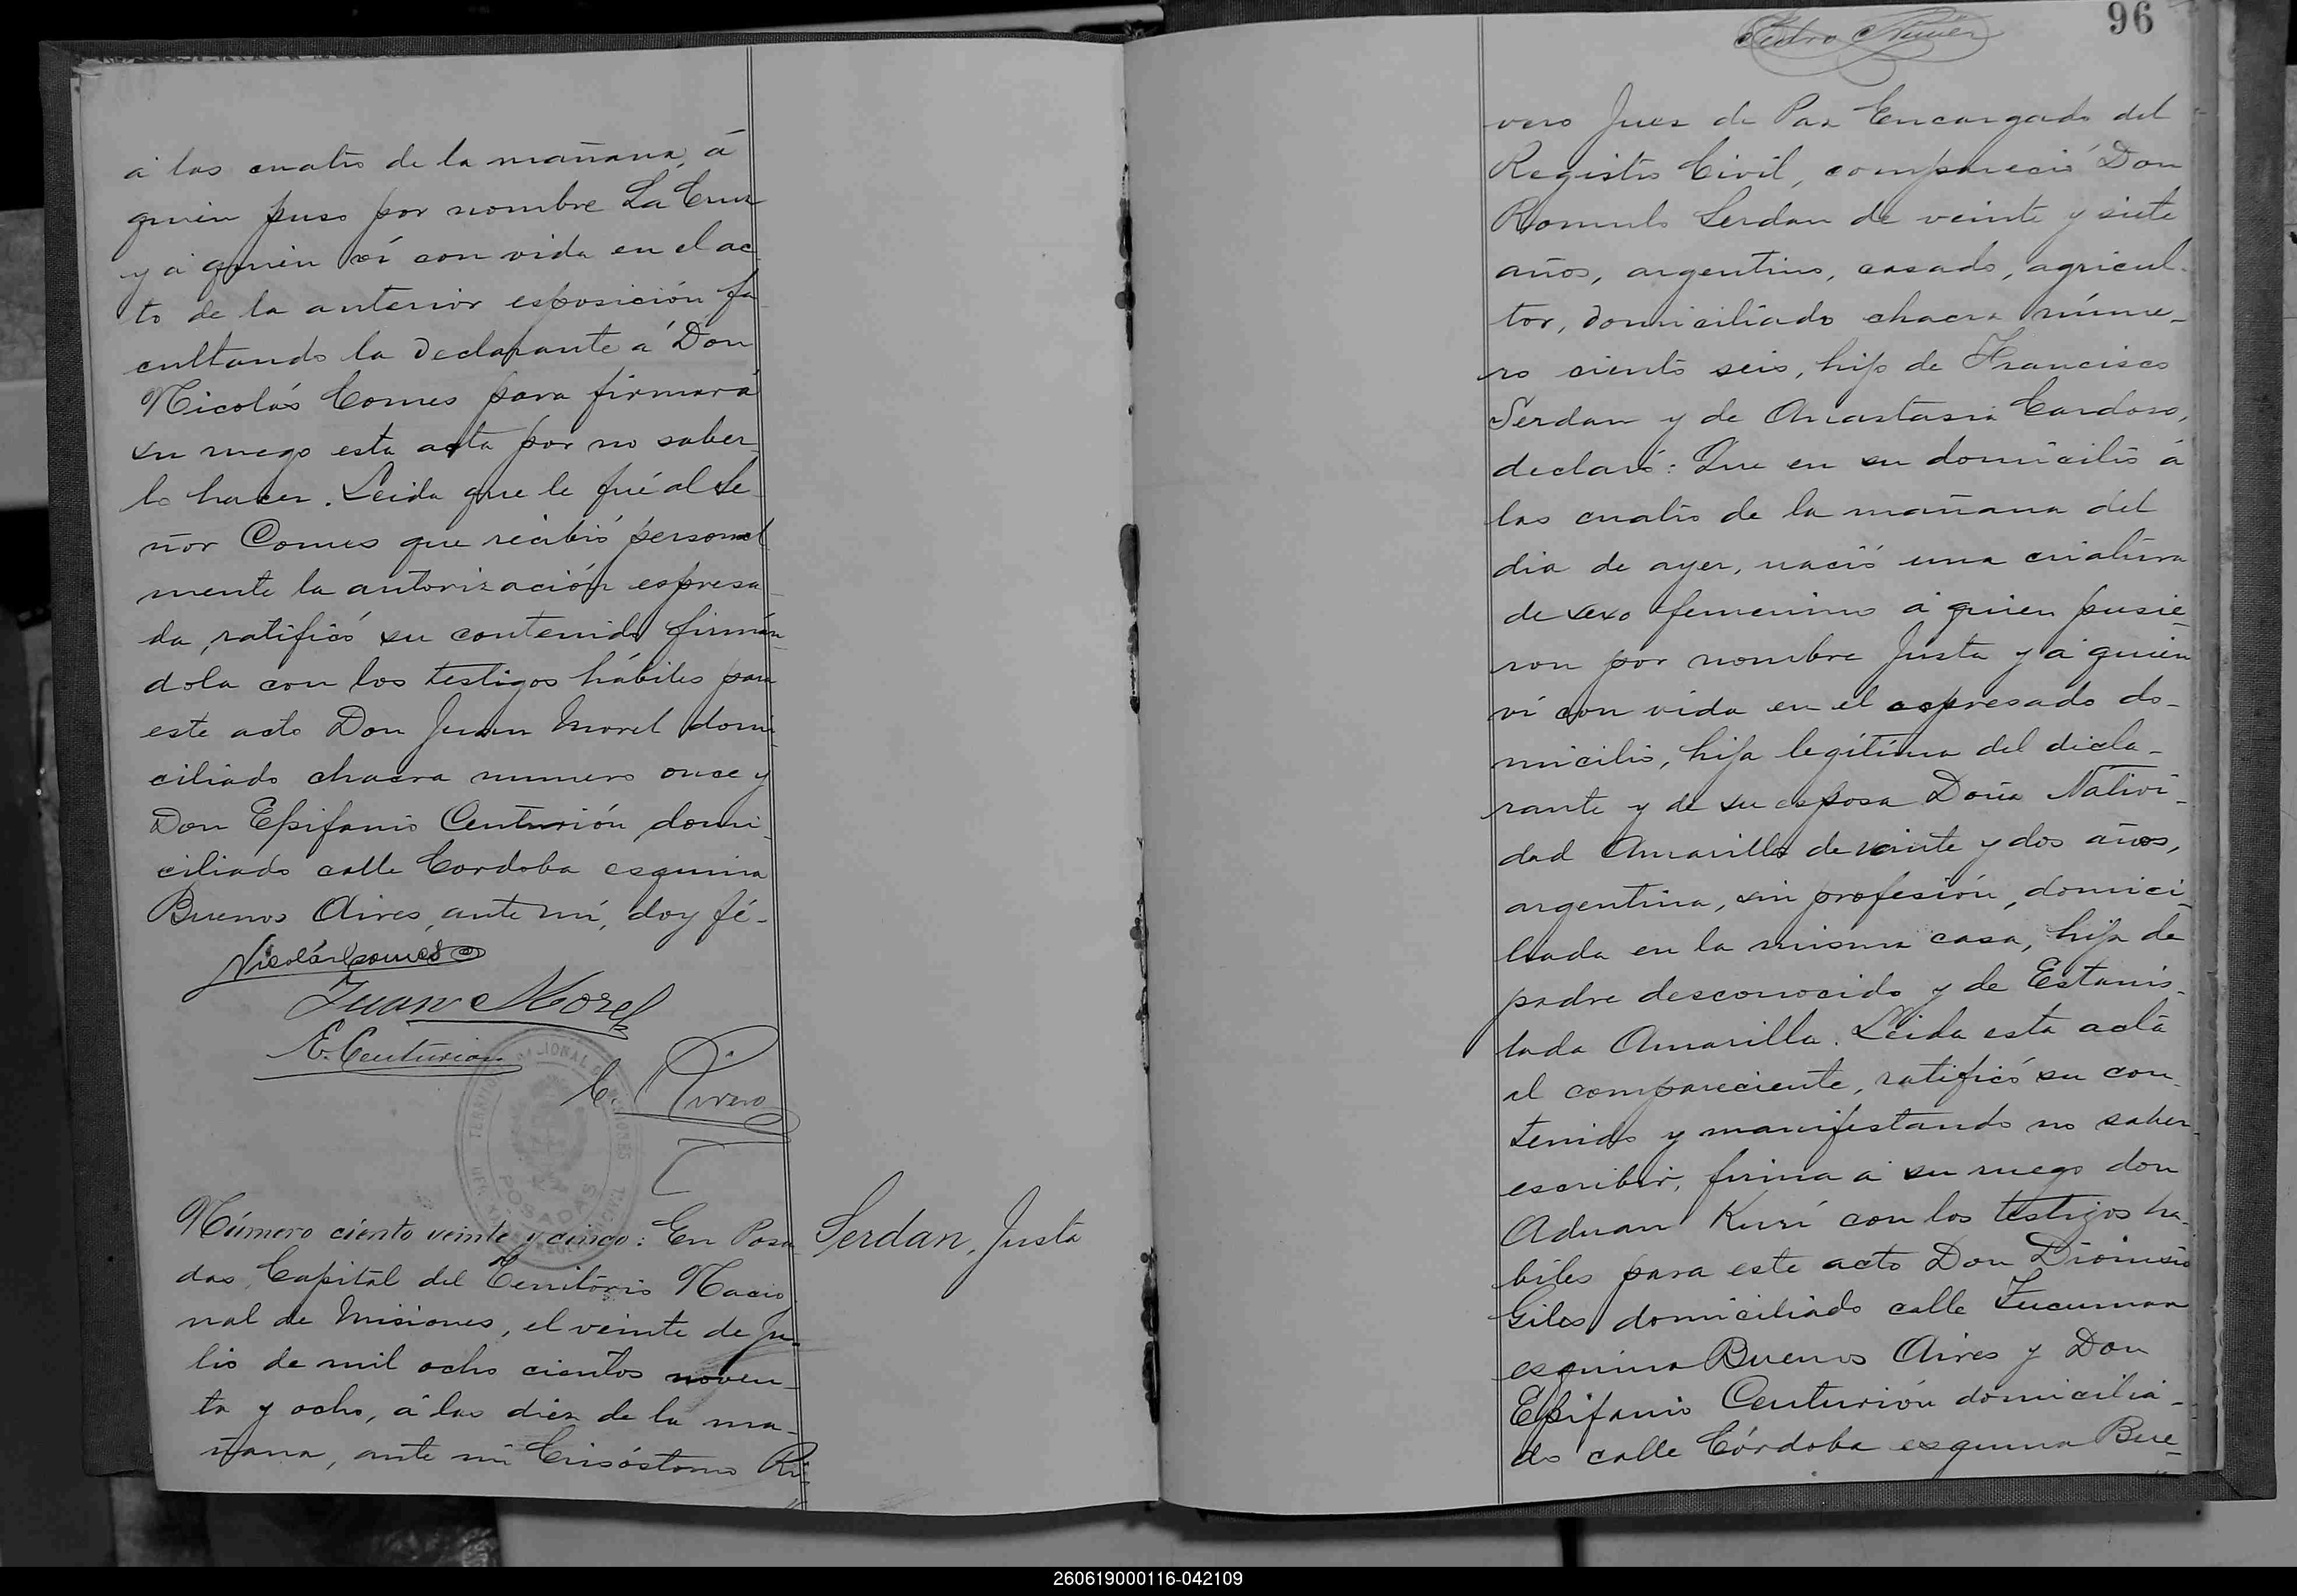 á las cuatro de la mañana, á
quien puso por nombre La Cruz
y á quien ví con vida en el ac
to de la anterior esposición fa
cultando la declarante á Don
Nicolás Comes para firmar á
su ruego esta acta por no saber
lo hacer. Leida que le fué al Se-
ñor Comes que recibió personal
mente la autorización espresa-
da, ratificó su contenido firmán-
dola con los testigos hábiles para
este acto Don Juan Morel domi-
ciliado chacra numero once y
Don Epifanio Centurión domi-
ciliado calle Cordoba esquina
Buenos Aires, ante mí, doy fé-
Nicolás Comes
Juan Morel
E. Centurion
C. Rivero
POSADAS
Número ciento veinte y cinco: En Posa
das, Capital del Territorio Nacio
nal de Misiones, el veinte de Ju-
lio de mil ocho cientos noven-
ta y ocho, á las diez de la ma-
ñana, ante mi Crisóstomo Ri-
Serdan, Justa
96
Pedro Nuñez
vero Juez de Paz Encargado del
Registro Civil, compareció Don
Romulo Serdan de veinte y siete
años, argentino, casado, agricul-
tor, domiciliado chacra núme-
ro ciento seis, hijo de Francisco
Serdan y de Anastasia Cardoso,
declaró: Que en su domicilio á
las cuatro de la mañana del
dia de ayer, nació una criatura
de sexo femenino á quien pusie-
ron por nombre Justa y á quien
ví con vida en el espresado do-
micilio, hija legítima del decla-
rante y de su esposa Doña Nativi-
dad Amarilla de veinte y dos años,
argentina, sin profesión, domici-
liada en la misma casa, hija de
padre desconocido y de Estanis-
lada Amarilla. Leida esta acta
al compareciente, ratificó su con-
tenido y manifestando no saber
escribir, firma á su ruego don
Aduan Kurí con los testigos há-
biles para este acto Don Dionisio
Giles domiciliado calle Tucuman
esquina Buenos Aires y Don
Epifanio Centurión domicilia-
do calle Córdoba esquina Bue-
260619000116-042109